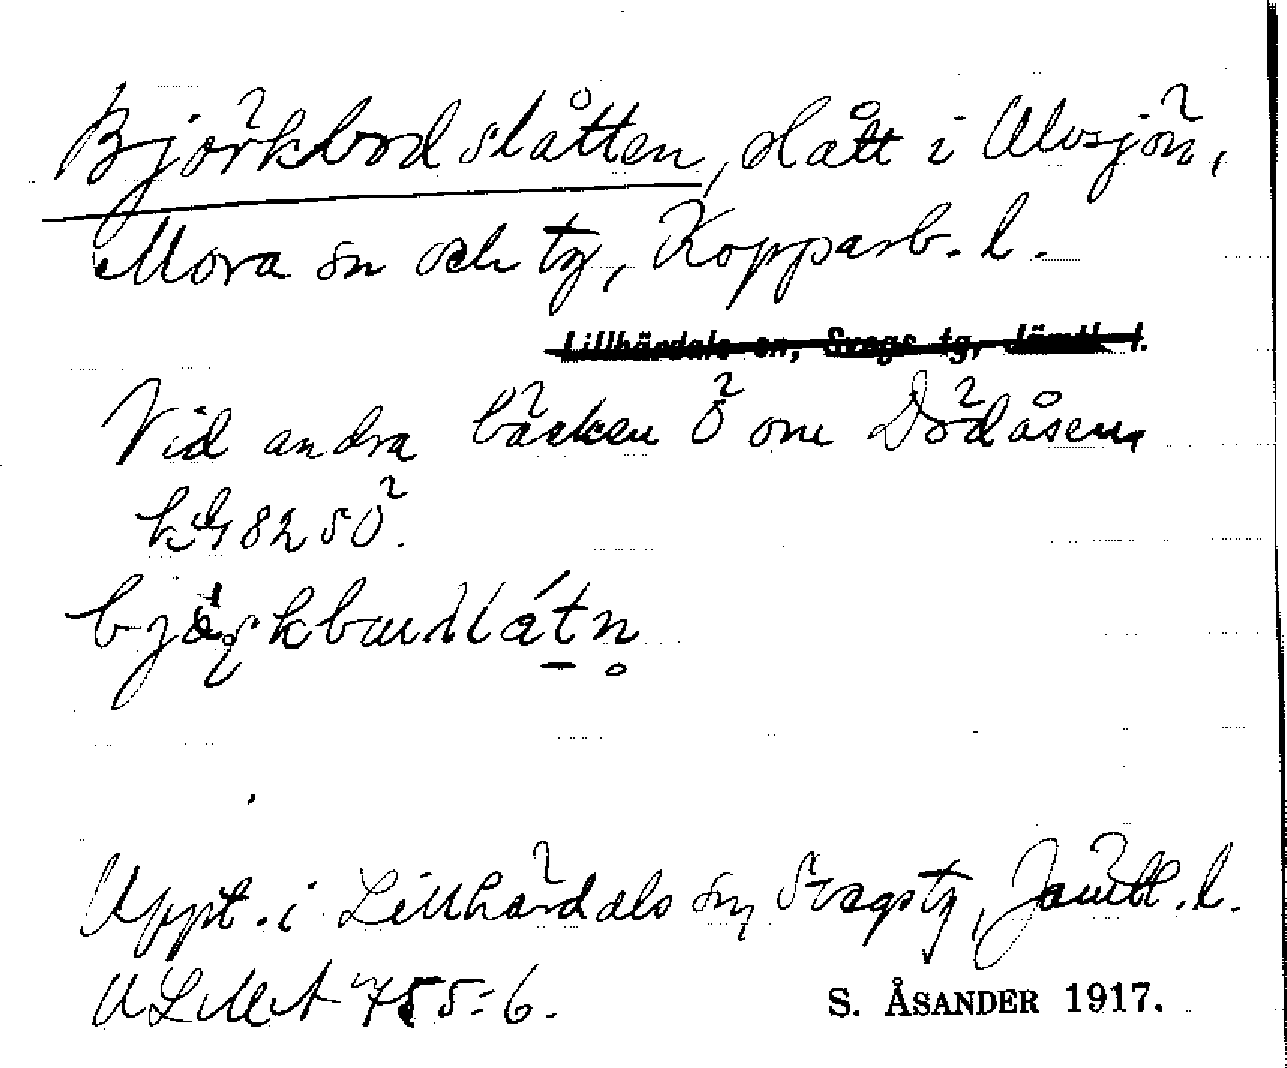 Björkbodslåtten, slått i Alvsjön,
Mora sn och tg, Kopparb. l.
Lillhärdals sn, Svegs tg, Jämtl. l.
Vid andra bäcken Ö om Dödåsen,
8250.
Uppt. i Lillhärdals sn, Svegs tg, Jämtl. l.
ULMA 755:6.
S. ÅSANDER 1917.